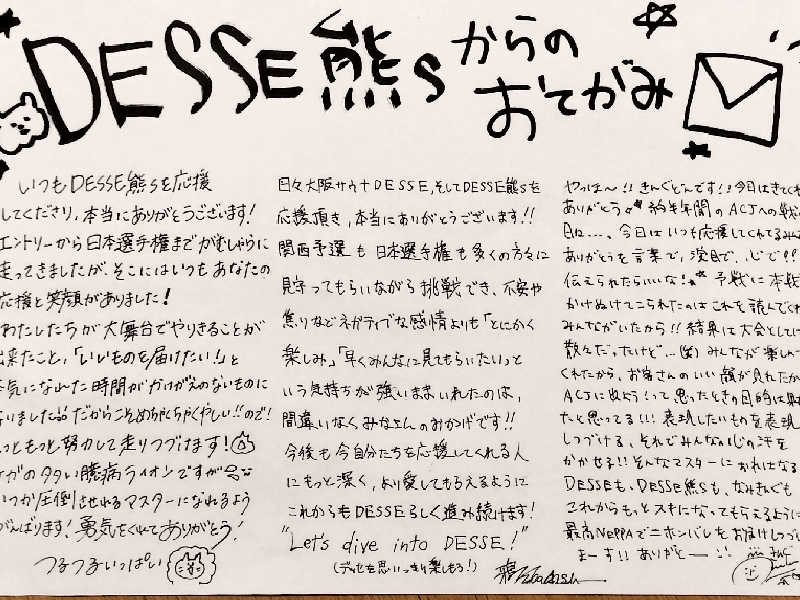 DESSE熊sからの
おてがみ
いつもDESSE熊sを応援
してくださり、本当にありがとうございます!
エントリーから日本選手権までがむしゃらに
走ってきましたが、そこにはいつもあなたの
応援と笑顔がありました!
わたしたちが大舞台でやりきることが
出来たこと、「いいものを届けたい!」と
本気になれた時間がかけがえのないものに
なりました だからこそめちゃくちゃくやしい!!ので!
もっともっと努力して走りつづけます!
ケガの多い臆病ライオンですが
いつか圧倒させれるマスターになれるよう
がんばります!勇気をくれてありがとう!
つるつるいっぱい
日々大阪サウナDESSE、そしてDESSE熊sを
応援頂き、本当にありがとうございます!!
関西予選も日本選手権も多くの方々に
見守ってもらいながら挑戦でき、不安や
焦りなどネガティブな感情よりも「とにかく
楽しみ」「早くみんなに見てもらいたい」っと
いう気持ちが強いままいれたのは、
間違いなくみなさんのおかげです!!
今後も今自分たちを応援してくれる人
にもっと深く、より愛してもらえるように
これからもDESSEらしく進み続けます!
"Let's dive into DESSE!"
(デッセを思いっきり楽しもう!)
やっほ〜!!きんぐどんです!!今日はきてくれ
ありがとう 約半年間のACJへの戦
今日はいつも応援してくれてるみん
ありがとうを言葉で、涙目で、心で!!
伝えられたらいいな! 予戦に本戦
かけぬけてこられたのはこれを読んでくれ
みんながいたから!!結果は大会としては
散々だったけど…(笑)みんなが楽しんで
くれたから、お客さんのいい顔が見れたか
ACJに出ようって思ったときの目的は
たと思ってる!!表現したいものを表現
しつづける、それでみんなの心の汗を
かかせる!!そんなマスターにおれはなる
DESSEも、DESSE熊sも、なみきんぐも
これからもっとスキになってもらえるように
最高NEPPAでニホンバレをお届けしつづ
まーす!!ありがとー